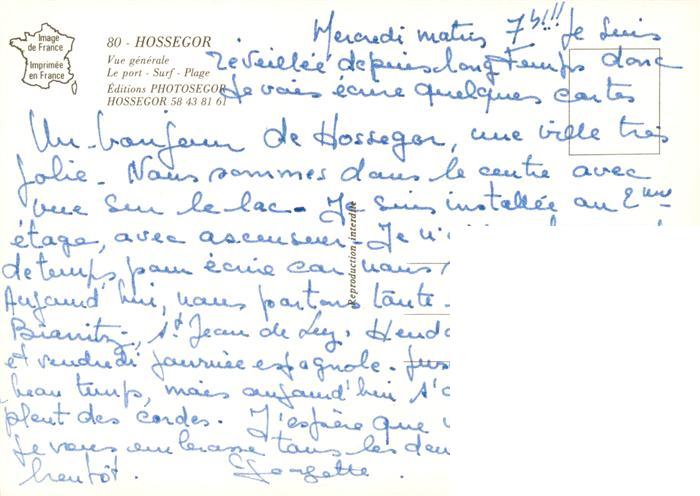 Image
de France
Imprimée
en France
80 - HOSSEGOR
Vue générale
Le port - Surf - Plage
Éditions PHOTOSEGOR
HOSSEGOR 58 43 81 61
Reproduction interdite
Mercredi matin 7h!!! Je suis
réveillée depuis longtemps donc
Je vais écrire quelques cartes
Un bonjour de Hossegor, une ville très
jolie. Nous sommes dans le centre avec
vue sur le lac. Je suis installée au 2ème
étage, avec ascenseur. Je n'
de temps pour écrire car nous
Aujourd'hui, nous partons toute
Biarritz, St Jean de Luz, Hend
et vendredi journée espagnole.
beau temps, mais aujourd'hui
pleut des cordes. J'espère que
Je vous embrasse tous les deu
bientôt. Georgette